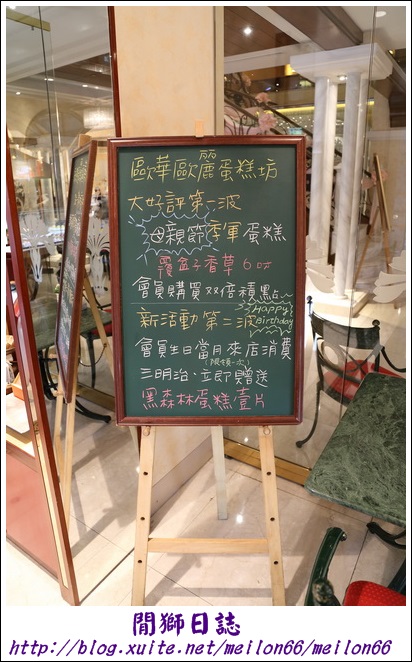 歐華歐麗蛋糕坊
大好評第二波
母親節季軍蛋糕
覆盆子香草6吋
會員購買双倍積點
Happy
Birthday
新活動第二波
會員生日當月來店消費
(限換一次)
三明治,立即贈送
黑森林蛋糕壹片
閒獅日誌
http://blog.xuite.net/meilon66/meilon66